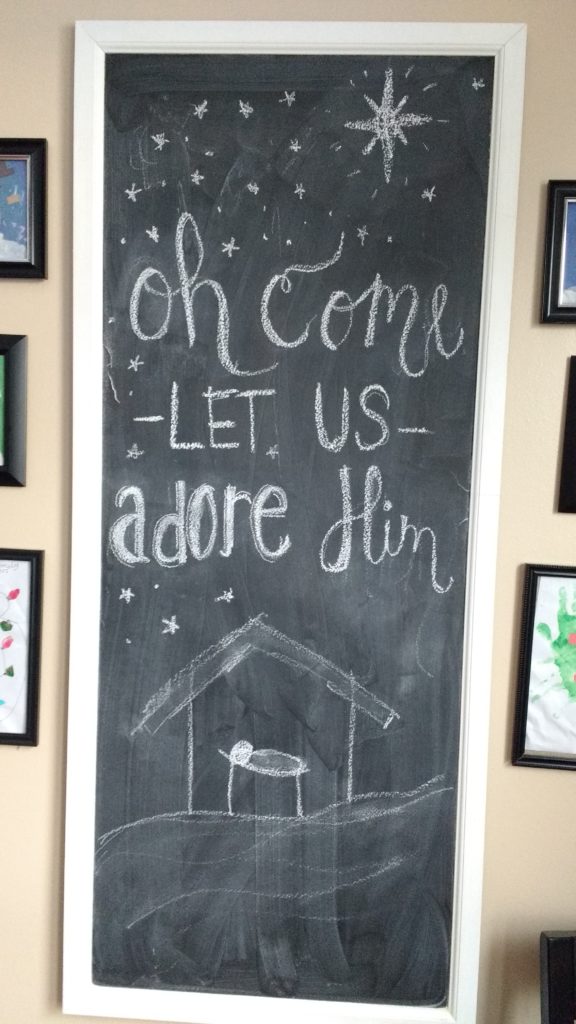 oh come
-LET US-
adore Him